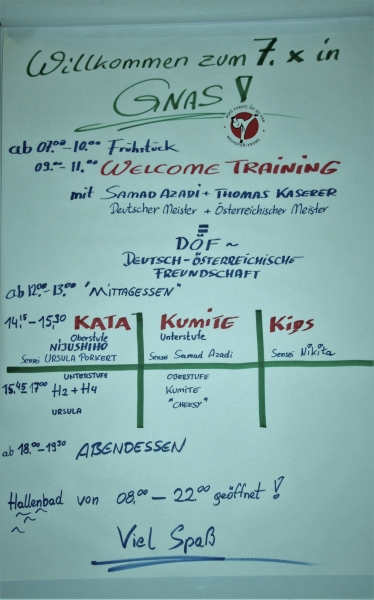 Willkommen zum 7. x in
GNAS!
ab 07.00-10.00 Frühstück
09.00-11.00 WELCOME TRAINING
mit SAMAD AZADI + THOMAS KASERER
Deutscher Meister + Österreichischer Meister
=
DÖF ~
DEUTSCH-ÖSTERREICHISCHE
FREUNDSCHAFT
ab 12.00-13.00 "MITTAGESSEN"
14.15-15.30 KATA KUMITE Kids
Oberstufe Unterstufe
NIJUSHIHO
Sensei URSULA PORKERT Sensei Samad Azadi Sensei Nikita
UNTERSTUFE OBERSTUFE
15.45 17.00 H2 + H4 KUMITE
URSULA "CHEESY"
ab 18.00-19.30 ABENDESSEN
Hallenbad von 08.00 - 22.00 geöffnet!
Viel Spaß